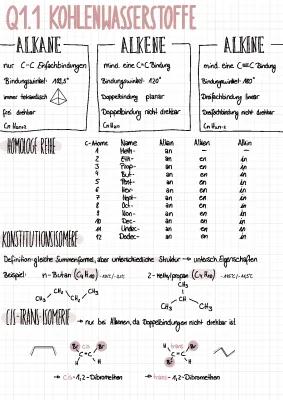 Q1.1 KOHLENWASSERSTOFFE
ALKANE
nur C-C Einfachbindungen
Bindungswinkel: 109,5°
immer tetraedrisch
frei drehbar
CnH2n+2
ALKENE
mind. eine C=C Bindung
Bindungswinkel: 120°
Doppelbindung planar
Doppelbindung nicht drehbar
CnH2n
ALKINE
mind. eine C≡C Bindung
Bindungswinkel: 180°
Dreifachbindung linear
Dreifachbindung nicht drehbar
CnH2n-2
HOMOLOGE REIHE
C-Atome Name Alkan Alken Alkin
1 Meth- an - -
2 Eth- an en in
3 Prop- an en in
4 But- an en in
5 Pent- an en in
6 Hex- an en in
7 Hept- an en in
8 Oct- an en in
9 Non- an en in
10 Dec- an en in
11 Undec- an en in
12 Dodec- an en in
KONSTITUTIONSISOMERE
Definition: gleiche Summenformel, aber unterschiedliche Struktur → untersch. Eigenschaften
Beispiel: n-Butan (C4H10) 2-Methylpropan (C4H10)
CH3 CH2 CH2 CH3
CH3
CH3 CH CH3
CIS-TRANS-ISOMERIE
→ nur bei Alkenen, da Doppelbindungen nicht drehbar ist
Br cis Br
C=C
H H
Br trans H
C=C
H Br
→ cis-1,2-Dibromethen
→ trans-1,2-Dibromethen